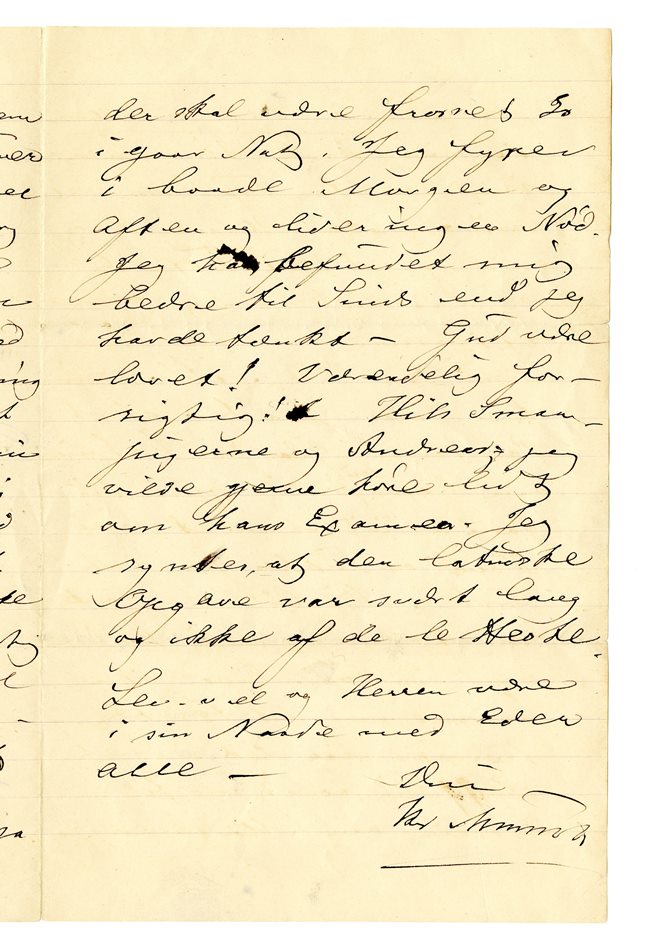 der skal være frosset Is
i gaar Nat. Jeg fyrer
i baade Morgen og
Aften og lider ingen Nød.
Jeg har befundet mig
bedre til Sinds end jeg
havde tænkt — Gud være
lovet! Vær endelig for-
sigtig! Hils Smaa-
pigerne og Andreas; jeg
vilde gerne høre lidt
om hans Examen. Jeg
syntes, at den latinske
Opgave var svært lang
og ikke af de letteste.
Lev vel og Herren være
i sin Naade med Eder
alle —
Din
Chr Munch